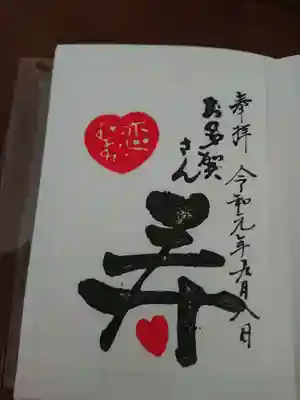 奉拝
令和元年五月八日
お多賀
さん
恋
むすび
寿